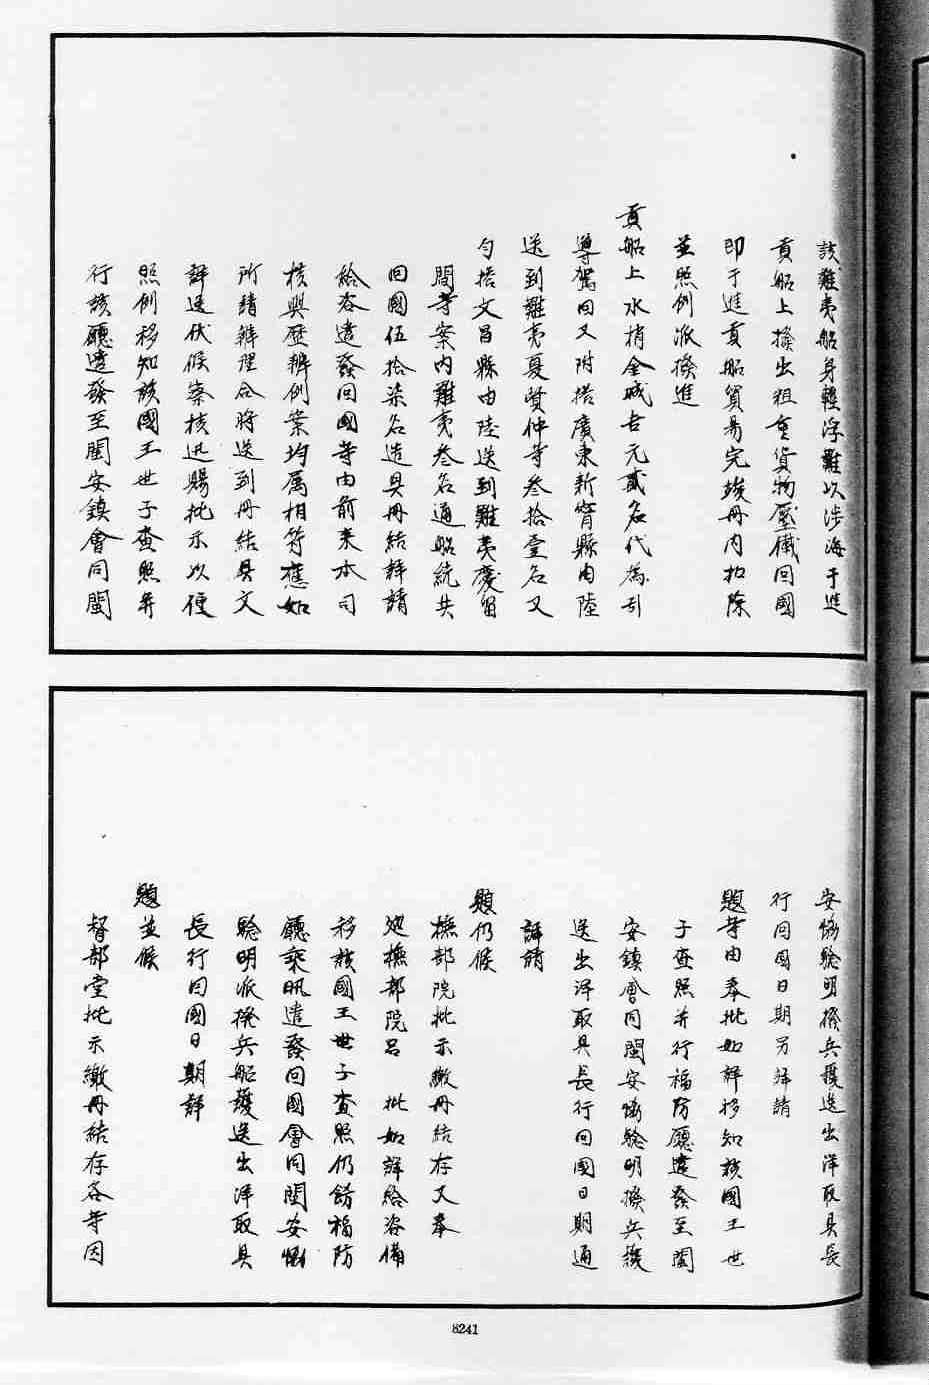 該難夷船身輕浮難以涉海于進
貢船上撥出粗重貨物壓儎回國
即于進貢船貿易完竣冊内扣除
並照例派撥進
貢船上水梢金城吉元貳名代為引
導駕回又附搭廣東新甯縣由陸
送到難夷夏賢仲等叁拾壹名又
勻搭文昌縣由陸送到難夷慶留
間等案内難夷叁名通船統共
回國伍拾柒名造具冊結詳請
給咨遣發回國等由前来本司
核與歷辦例案均属相符應如
所請辦理合將送到冊結具文
詳送伏候察核迅賜批示以便
照例移知該國王世子查照并
行該廳遣發至閩安鎮會同閩
安協驗明撥兵護送出洋取具長
行回國日期另詳請
題等由奉批如詳移知該國王世
子查照并行福防廳遣發至閩
安鎮會同閩安協驗明撥兵護
送出洋取具長行回國日期通
詳請
題仍候
撫部院批示繳冊結存又奉
廵撫部院吕 批如詳給咨備
移該國王世子查照仍飭福防
廳乘汛遣發回國會同閩安協
驗明派撥兵船護送出洋取具
長行回國日期詳
題並候
督部堂批示繳冊結存各等因
8241